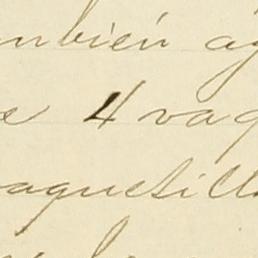 mbién ag
e 4 vaq
aquetill